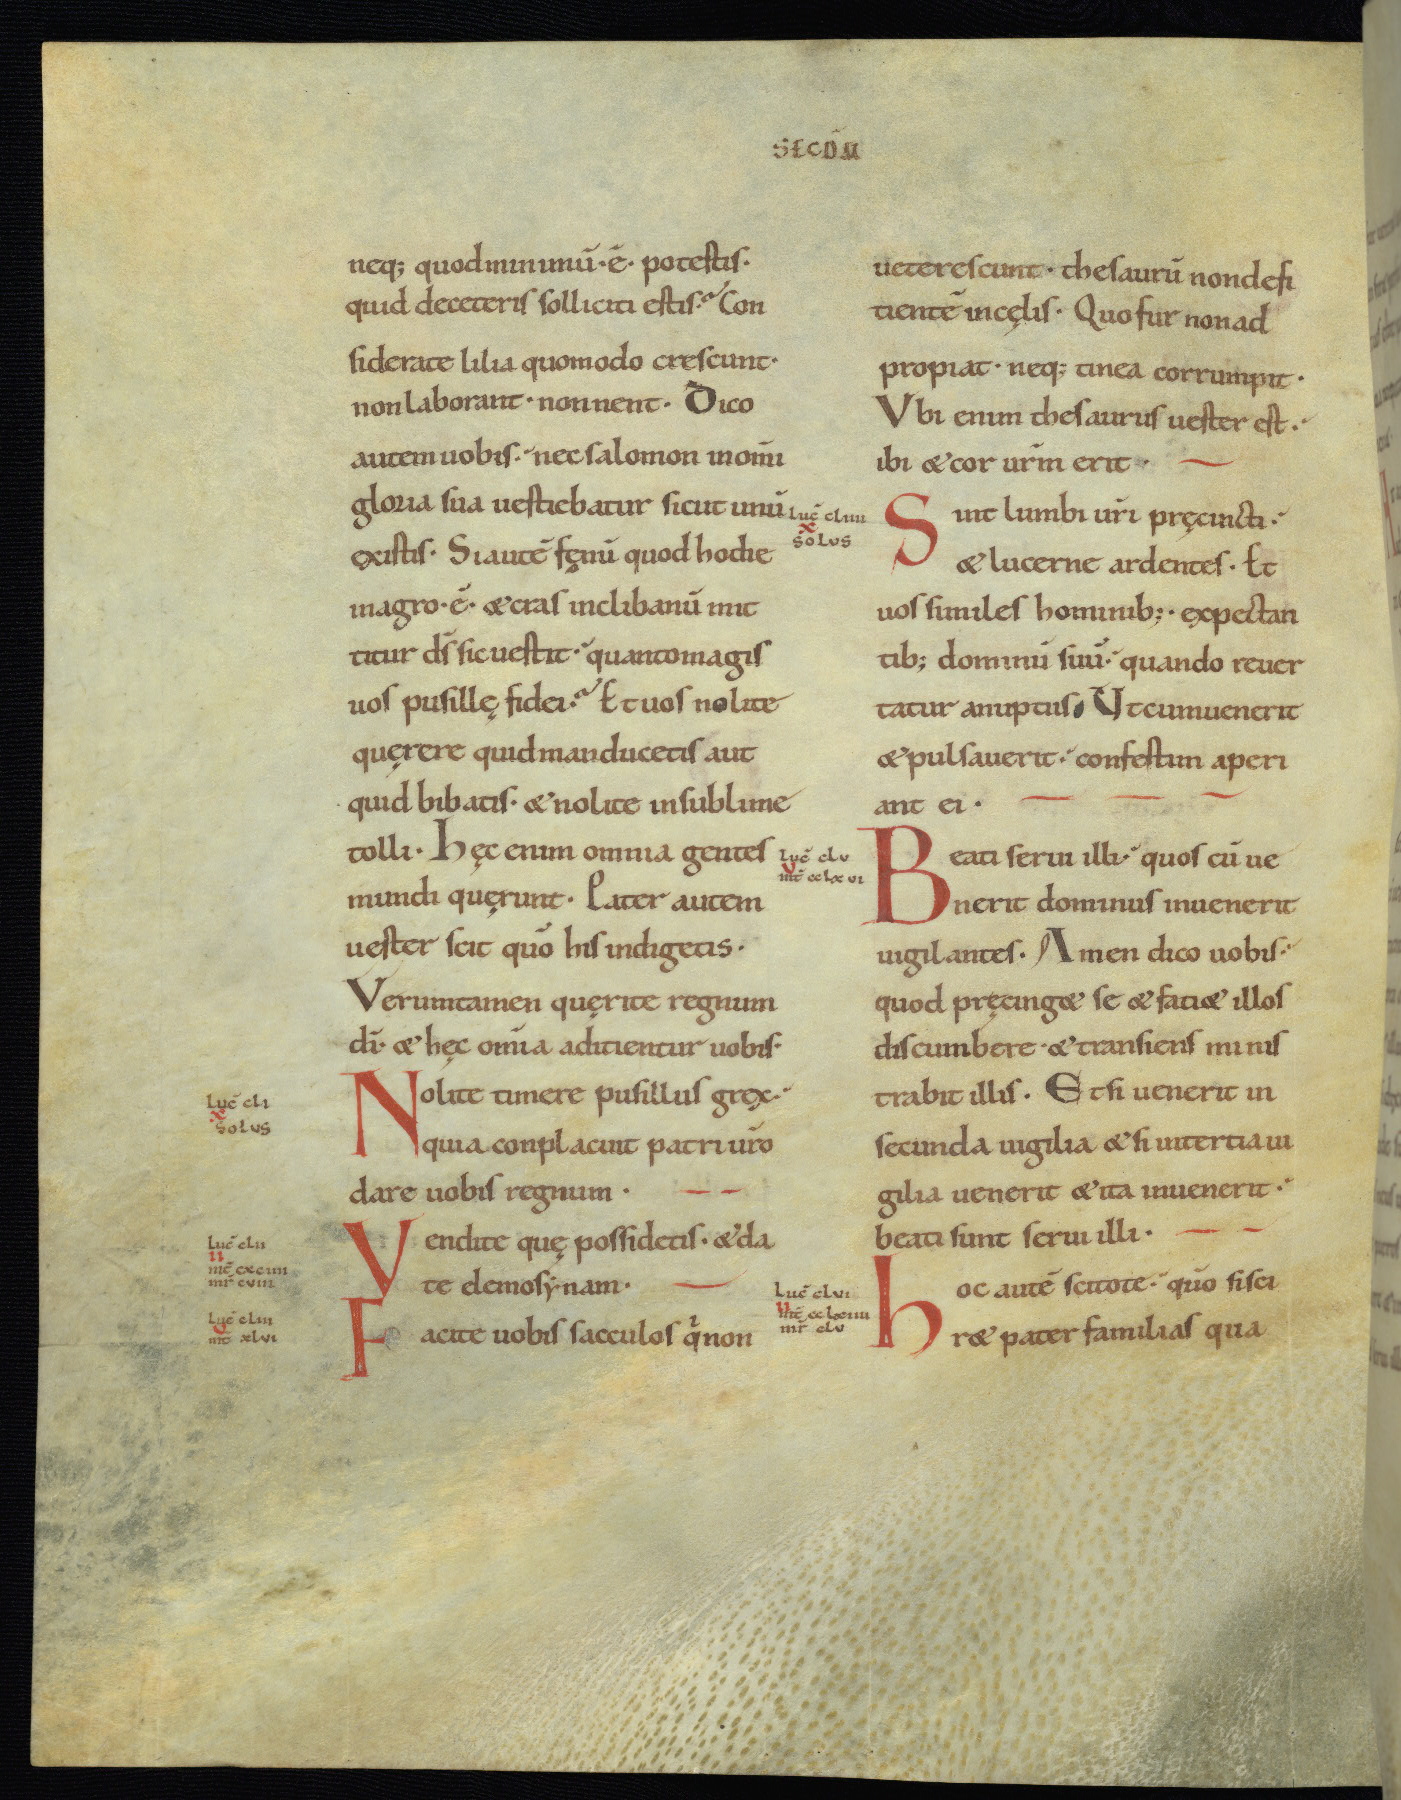 SECDM̄
neq; quod minimū·ē· potestis·
quid deceteris solliciti estis·? Con
siderate lilia quomodo crescunt·
non laborant· non nent· Dico
autem uobis· nec salomon in om̄i
gloria sua uestiebatur sicut unū
ex istis· Si autē fęnū quod hodie
in agro·ē· & cras in clibanū mit
titur d̄s sic uestit· quanto magis
uos pusillę fidei·? Et uos nolite
quęrere quid manducetis aut
quid bibatis· & nolite in sublime
tolli· Hęc enim omnia gentes
mundi quęrunt· Pater autem
uester scit quō his indigetis·
Verumtamen quęrite regnum
dī· & hęc om̄ia adicientur uobis·
Luc̄ cli
x
solus
Nolite timere pusillus grex·
quia conplacuit patri ur̄o
dare uobis regnum·
Luc̄ clii
ii
mt̄ cxciiii
mr̄ cviii
Vendite quę possidetis· & da
te elemosẏnam·
Luc̄ cliii
v
mt̄ xlvi
Facite uobis sacculos q̄ non
ueterescunt· thesaurū non defi
tientē in cęlis· Quo fur non ad
propiat· neq; tinea corrumpit·
Vbi enim thesaurus uester est·
ibi & cor ur̄m erit·
Luc̄ cliiii
x
solus
Sint lumbi ur̄i pręcincti·
& lucerne ardentes· Et
uos similes hominib;· expectan
tib; dominū suū· quando reuer
tatur a nuptiis; Vt cum uenerit
& pulsauerit· confestim aperi
ant ei·
Luc̄ clv
v
mt̄ cclxvi
Beati serui illi· quos cū ue
nerit dominus inuenerit
uigilantes· Amen dico uobis·
quod pręcing& se & faci& illos
discumbere· & transiens minis
trabit illis· Et si uenerit in
secunda uigilia & si in tertia ui
gilia uenerit & ita inuenerit·
beati sunt serui illi·
Luc̄ clvi
ii
mt̄ cclxiiii
mr̄ clv
Hoc autē scitote· quō si sci
r& pater familias qua